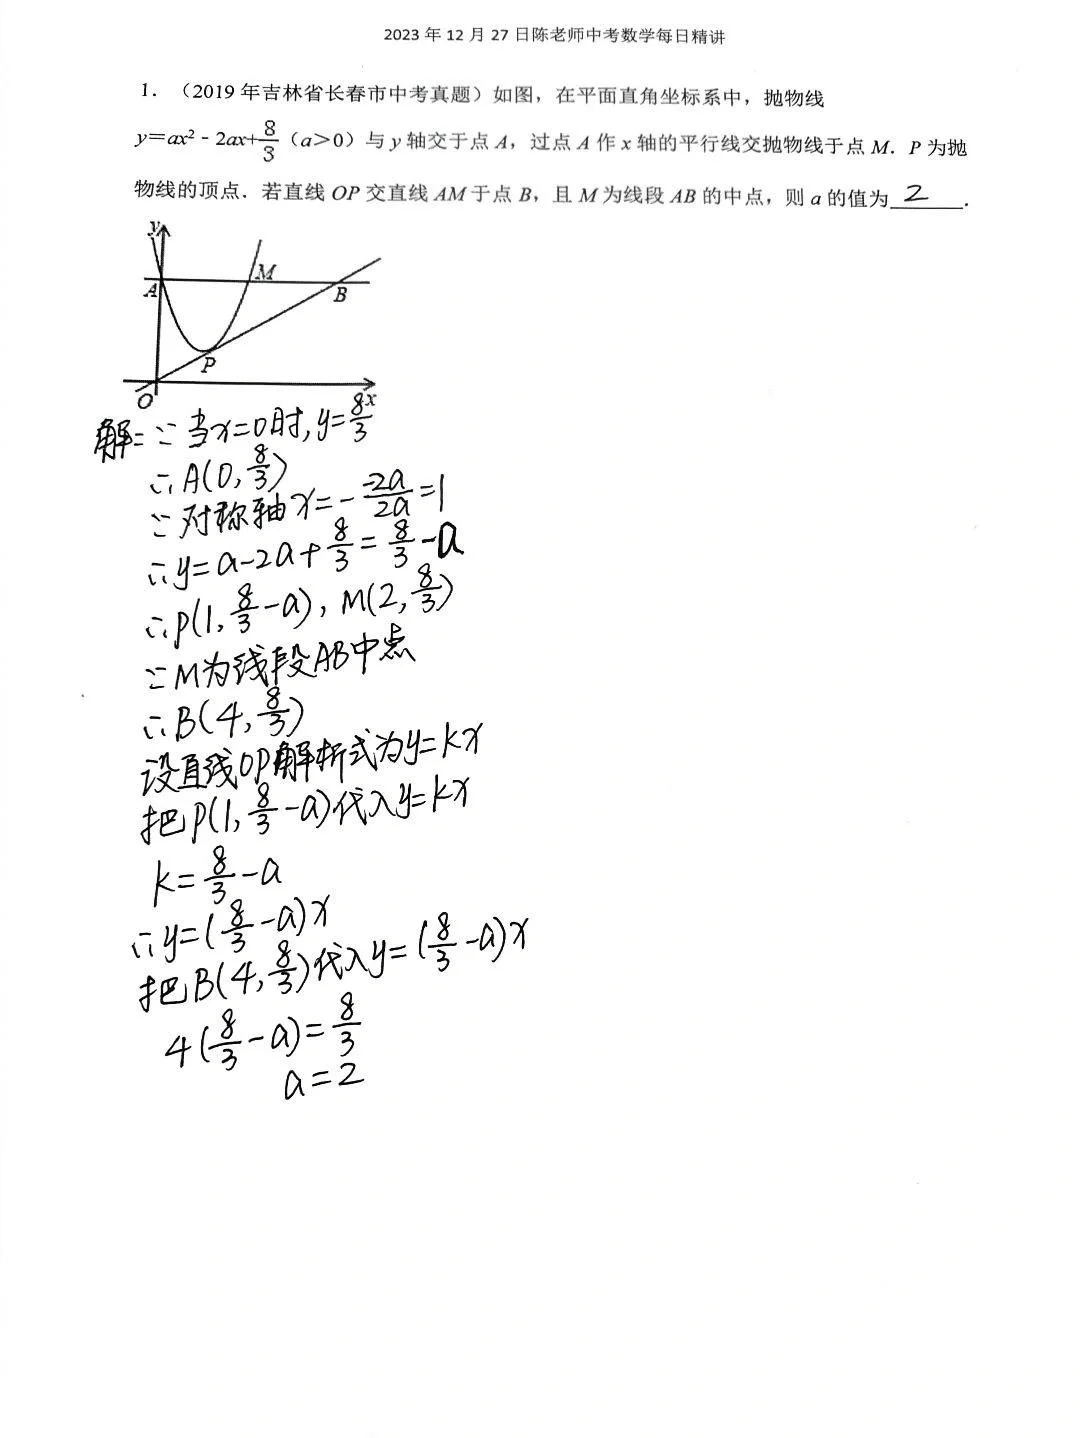 2023 年 12 月 27 日陈老师中考数学每日精讲
1. （2019 年吉林省长春市中考真题）如图，在平面直角坐标系中，抛物线
y＝ax² - 2ax+8/3（a＞0）与 y 轴交于点 A，过点 A 作 x 轴的平行线交抛物线于点 M．P 为抛
物线的顶点．若直线 OP 交直线 AM 于点 B，且 M 为线段 AB 的中点，则 a 的值为 2 ．
y
A M B
P
O x
解: ∵ 当x=0时, y=8/3
∴ A(0, 8/3)
∵ 对称轴 x=- -2a/2a =1
∴ y=a-2a+8/3=8/3-a
∴ P(1, 8/3-a), M(2, 8/3)
∵ M为线段AB中点
∴ B(4, 8/3)
设直线OP解析式为y=kx
把P(1, 8/3-a)代入y=kx
k=8/3-a
∴ y=(8/3-a)x
把B(4, 8/3)代入y=(8/3-a)x
4(8/3-a)=8/3
a=2